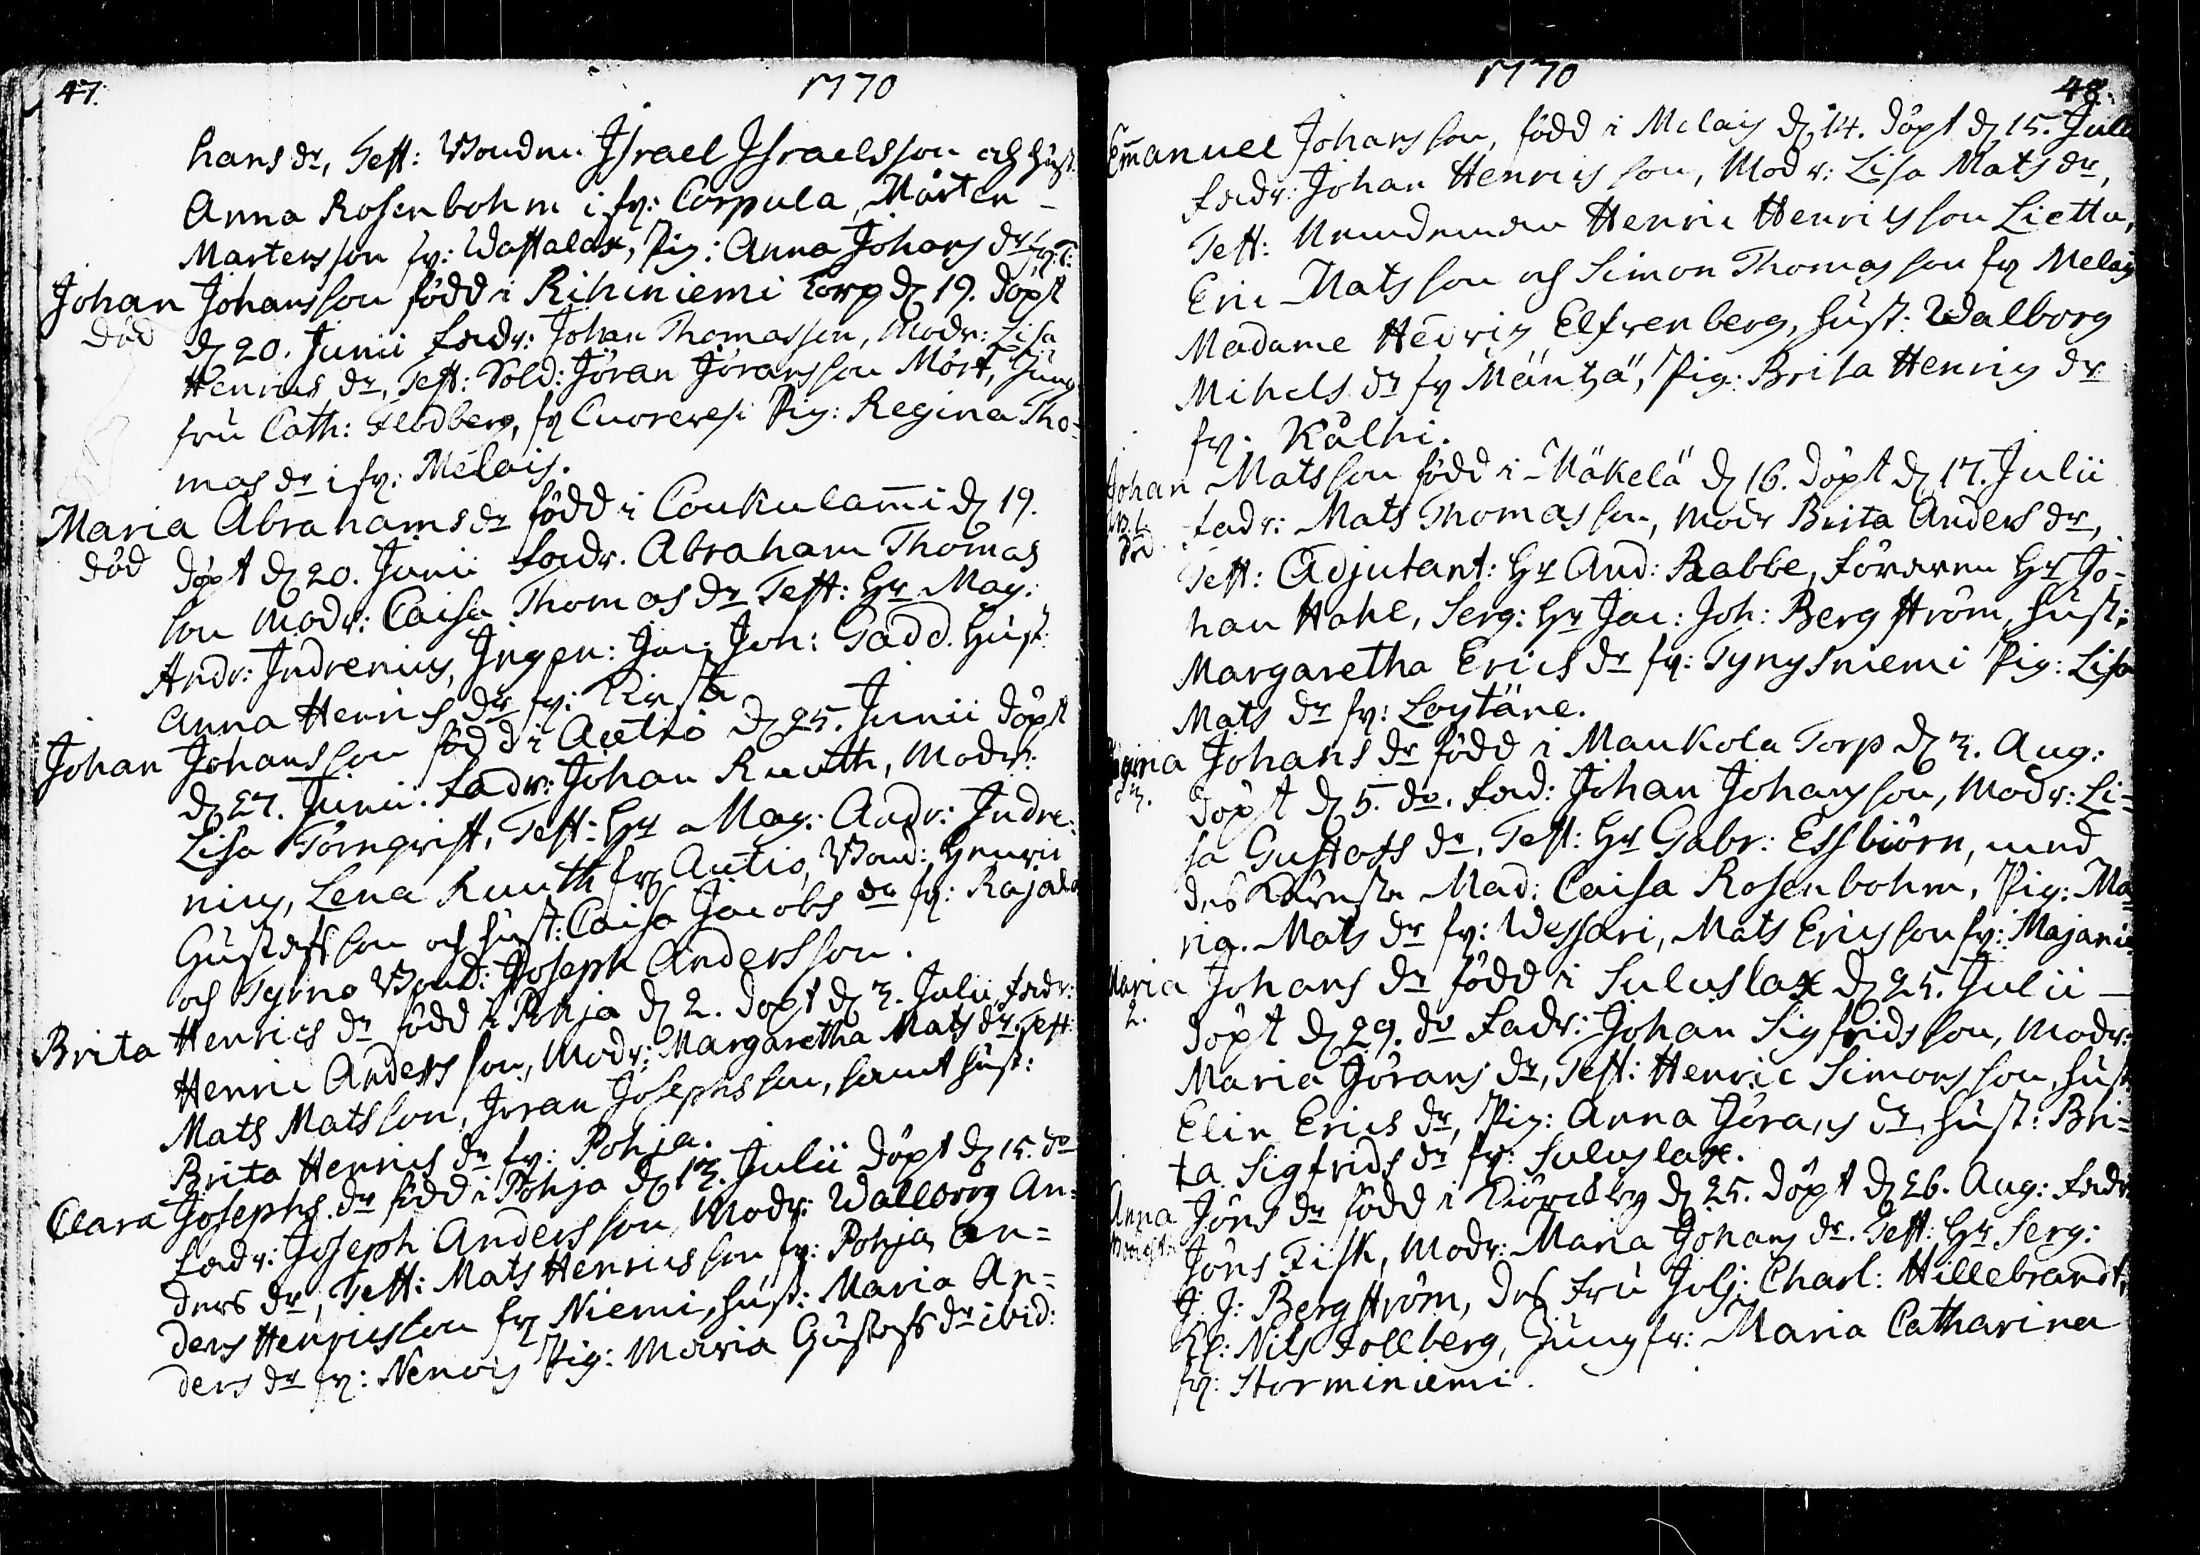 47.
1770
hans dr, Test: Bonden Israel Israelsson och hust:
Anna Rosenbohm i fr: Corpula, Mårten
Martensson fr: Wastalax, Pig: Anna Johans dr
Johan Johansson född i Rihiniemi Torp d 19. döpt
död
d 20. Junii Fadr: Johan Thomasson, Modr: Lisa
Henrics dr, Test: Sold: Jöran Jöransson Mört, Jung
fru Cath: Feldberg, fr Cuorevesi Pig: Regina Tho-
mas dr i fr: Melais.
Maria Abrahams dr född i Coukulam̄i d 19.
död
döpt d 20. Junii Fadr. Abraham Thomas
son Modr: Caisa Thomas dr Test: Hr Mag:
Andr: Indrenius, Ingen: Jac: Joh: Gadd. Hust:
Anna Henrics dr fr: Kirsta
Johan Johansson född i Autio d 25. Junii döpt
d 27. Junii. Fadr: Johan Ruuth, Modr:
Lisa Törnqvist, Test: Hr Mag: Andr: Indre-
nius, Lena Ruuth fr Autio, Bond: Henric
Gustafsson och hust: Caisa Jacobs dr fr: Rajala
och Tyrno Bond: Joseph Andersson.
Brita Henrics dr född i Pohja d 2. döpt d 3. Julii Fadr:
Henric Andersson, Modr: Margaretha Mats dr, Test:
Mats Matsson, Jöran Josephsson, samt hust:
Brita Henrics dr fr: Pohja.
Clara Josephs dr född i Pohja d 13. Julii döpt d 15. do
Fadr: Joseph Andersson Modr: Walborg An-
ders dr, Test: Mats Henricsson fr: Pohja, An-
ders Henricsson fr Niemi, hust: Maria An-
ders dr fr: Nenois Pig: Maria Gustafs dr ibid:
1770
48.
Em̄anuel Johansson, född i Melais d 14. döpt d 15. Julii
Fadr: Johan Henricsson, Modr: Lisa Mats dr,
Test: Nemndeman Henric Henricsson Liettu,
Eric Matsson och Simon Thomasson fr Melais
Madame Hedvig Elfvenberg, hust: Walborg
Mihels dr fr Mäntzä, Pig: Brita Henrics dr
fr: Kålhi.
Johan Matsson född i Mäkelä d 16. döpt d 17. Julii
död
Fadr: Mats Thomasson, Modr Brita Anders dr,
Test: Adjutant: Hr And: Rabbe, Föraren Hr Jo-
han Hohl, Serg: Hr Jac: Joh: Bergström, hust:
Margaretha Erics dr fr: Tynysniemi Pig: Lisa
Mats dr fr: Loytäne.
Regina Johans dr född i Maukola Torp d 3. Aug:
3.
döpt d 5. do. Fad: Johan Johansson, Modr: Li-
sa Gustafs dr, Test: Hr Gabr: Essbiörn, med
des Käresta Mad: Caisa Rosenbohm, Pig: Ma-
ria Mats dr fr: Wessari, Mats Ericsson fr: Majanie
Maria Johans dr född i Suluslax d 25. Julii
2.
döpt d 29. do Fadr: Johan Sigfridsson, Modr:
Maria Jörans dr, Test: Henric Simonsson, hust
Elin Erics dr, Pig: Anna Jörans dr, hust: Bri-
ta Sigfrids dr fr: Suluslax.
Anna Jöns dr född i d 25. döpt d 26. Aug: Fadr
Jöns Fisk, Modr: Maria Johans dr. Test: Hr Serg:
J. J: Bergström, des Fru Julj: Charl: Hillebrandt,
Nils Follberg, Jungfr: Maria Catharina
fr: Storminiemi.